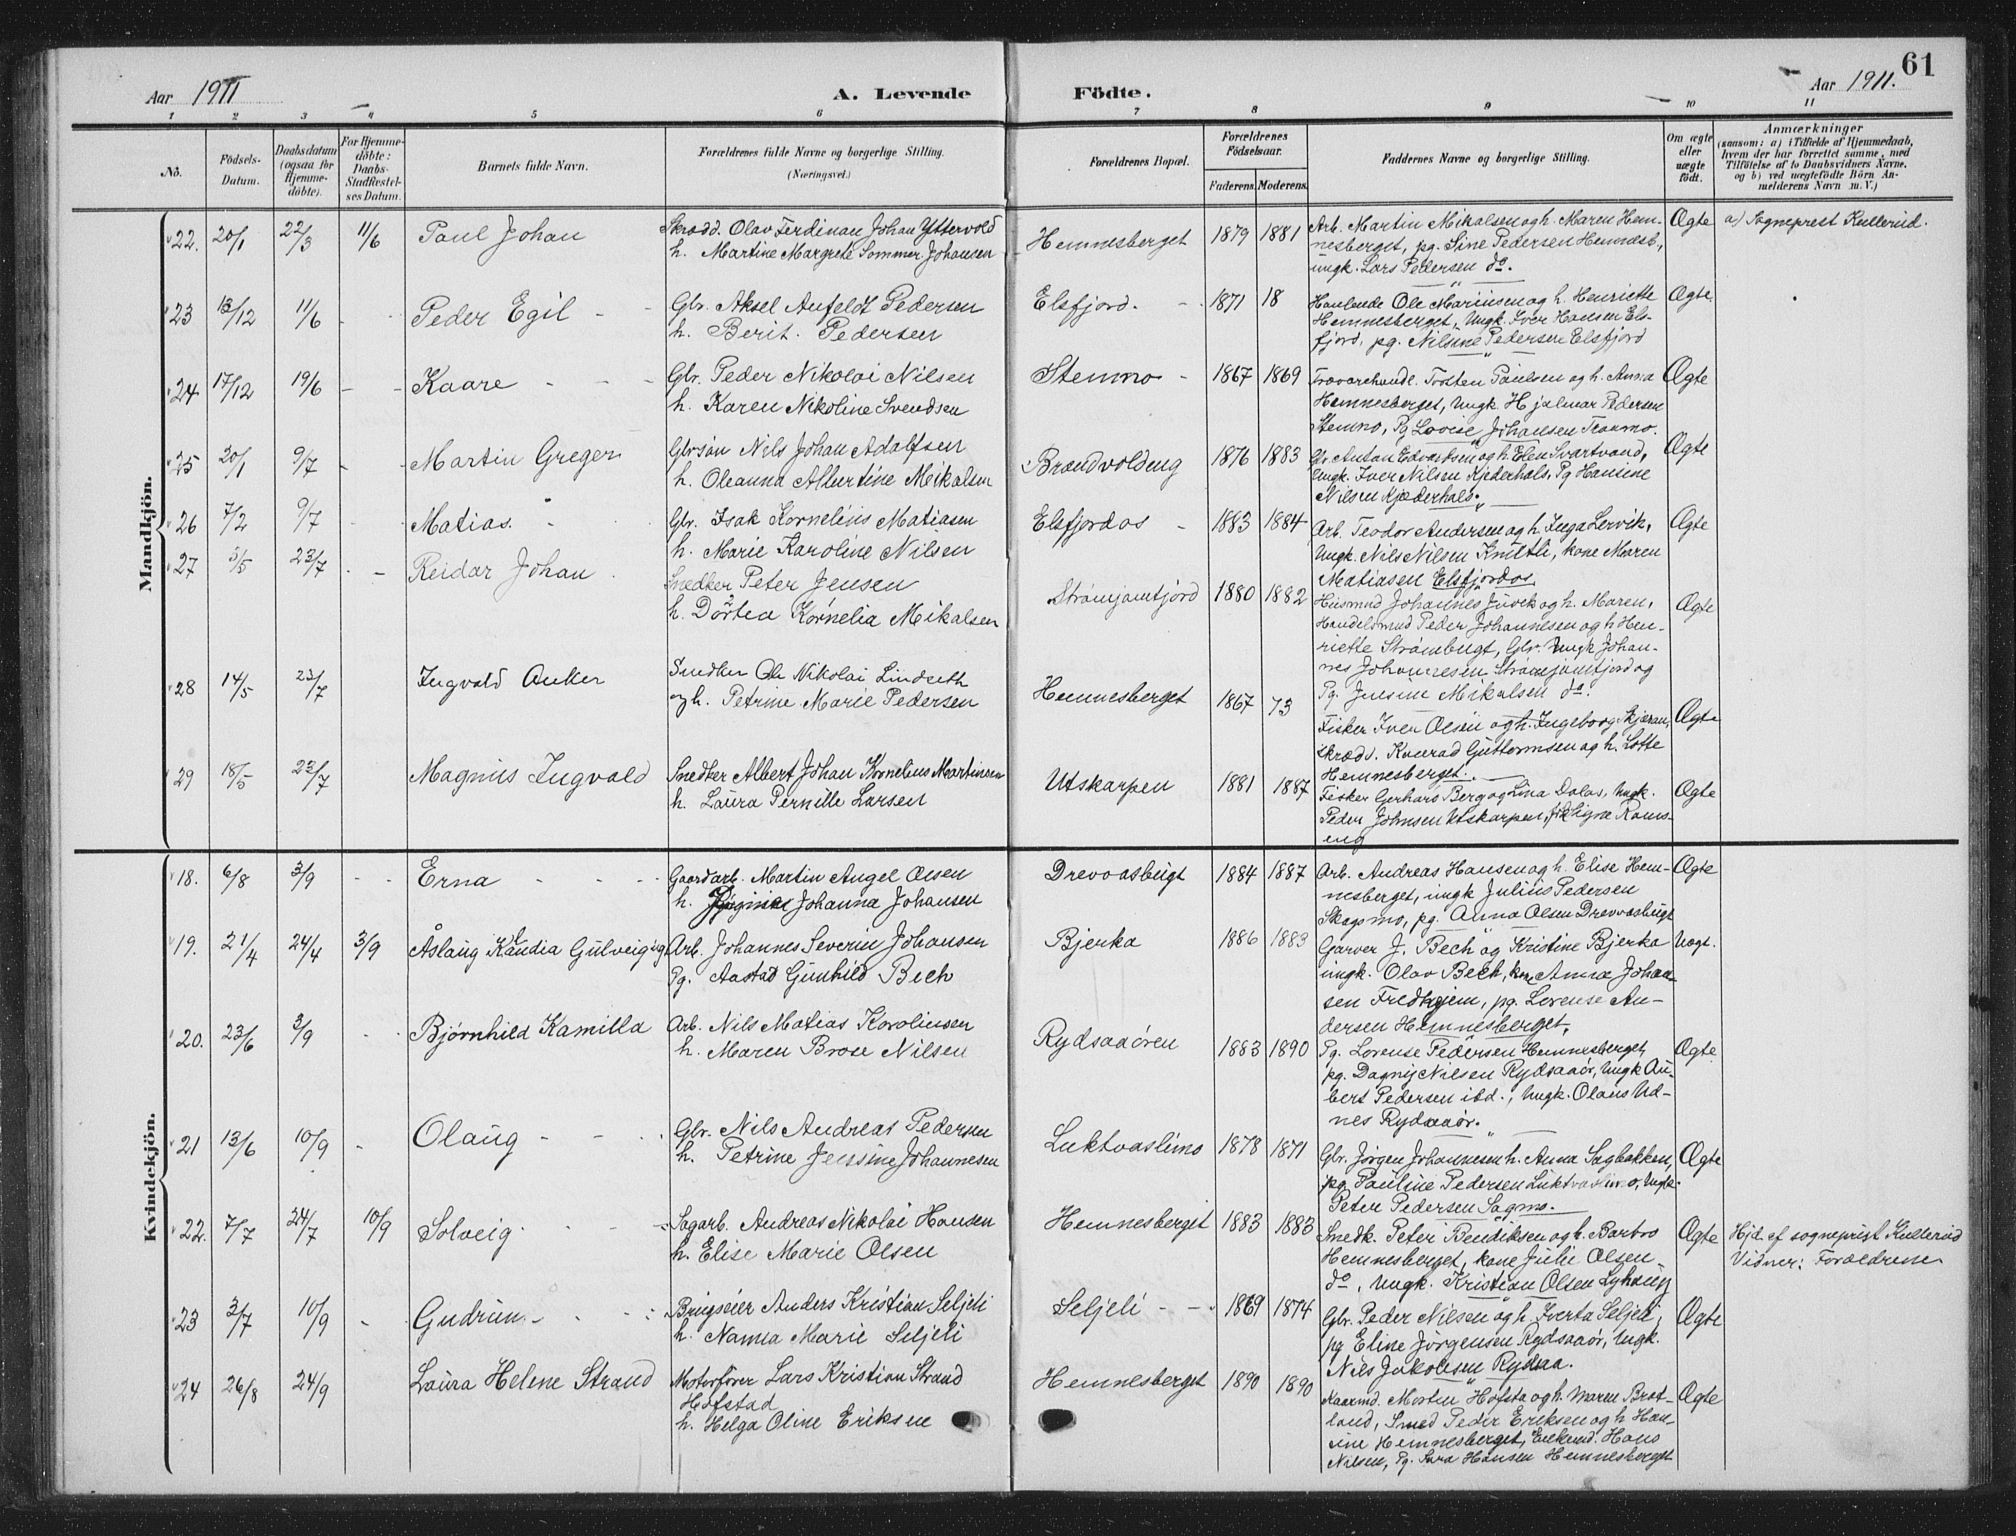 61
Aar 1911
A. Levende Födte.
Aar 1911.
1 2 3 4 5 6 7 8 9 10 11
No.
Födsels-Datum.
Daabsdatum (ogsaa for Hjemmedöbte).
For Hjemmedöbte: Daabs-Stadfæstelses Datum.
Barnets fulde Navn.
Forældrenes fulde Navne og borgerlige Stilling. (Næringsvei.)
Forældrenes Bopæl.
Forældrenes Födselsaar.
Faderens. Moderens.
Faddernes Navne og borgerlige Stilling.
Om ægte eller uægte födt.
Anmærkninger
(saasom: a) i Tilfælde af Hjemmedaab, hvem der har forrettet samme, med Tilföielse af to Daabsvidners Navne, og b) ved uægtefödte Börn Anmelderens Navn m. V.)
Mandkjön.
22. 20/1 22/3 11/6 Paul Johan
Skrædd. Olav Ferdinan Johan Yttervold
h. Martine Margrete Sommer Johansen
Hemnesberget 1879 1881
Arb. Martin Mikalsen og h. Maren Hem-
nesberget, pg. Sine Pedersen Hemnesb,
ungk. Lars Pedersen do.
Ægte a) Sogneprest Kullerud.
23 13/12 11/6 Peder Egil
Gbr. Aksel Anfeldt Pedersen
h. Berit. Pedersen
Elsfjord. 1871 18
Handlende Ole Marinsen og h. Henriette
Hemnesberget, Ungk. Iver Hansen Els-
fjord, pg. Nilsine Pedersen Elsfjord
Ægte
24 17/12 19/6 Kaare
Gbr. Peder Nikolai Nilsen
h. Karen Nikoline Svendsen
Stemmo 1867 1869
Travarehandl. Torsten Paulsen og h. Anna
Hemnesberget, Ungk. Hjalmar Pedersen
Stemno, Pg Lovise Johansen Traumo.
Ægte
25 20/1 9/7 Martin Greger
Gbrsøn Nils Johan Adolfsen
h. Oleanna Albertine Mikalsen
Brændvoldeng 1876 1883
Gbr. Anton Edvartsen og h. Elen Svartvand,
Ungk. Iver Nilsen Kjederhals, Pg Hansine
Nilsen Kjæderhals.
Ægte
26 7/2 9/7 Matias.
Gbr. Isak Kornelius Matiasen
h. Marie Karoline Nilsen
Elsfjordos 1883 1884
Arb. Teodor Andersen og h. Inga Lervik,
Ungk. Nils Nilsen Knutli, kone Maren
Matiasen Elsfjordos
Ægte
27 5/5 23/7 Reidar Johan
Snedker Peter Jensen
h. Dortea Kornelia Mikalsen
Strømjamtjord 1880 1882
Husmnd Johannes Juvik og h. Maren,
Handelsmnd Peder Johannesen og h Hen-
riette Strømbugt, Gbr. Ungk Johan-
nes Johannesen Strømjamtjord og
Pg. Jensine Mikalsen do.
Ægte
28 14/5 23/7 Ingvald Anker
Snedker Ole Nikolai Lindseth
og h. Petrine Marie Pedersen
Hemnesberget 1867 73
Fisker Iver Olsen og h. Ingeborg Skjæran,
skræd. Konrad Guttormsen og h. Lotte
Hemnesberget.
Ægte
29 18/5 23/7 Magnus Ingvald
Snedker Albert Johan Kornelius Martinsen
h. Laura Pernille Larsen
Utskarpen 1881 1887
Fisker Gerhard Berg og Lina Dalos, Ungk.
Peder Johnsen Utskarpen, Signe Rams-
eng
Ægte
Kvindekjön.
18. 6/8 3/9 Erna
Gaardarb. Martin Angel Olsen
h. Johanna Johansen
Drevvasbugt 1884 1887
Arb. Andreas Hansen og h. Elise Hem-
nesberget, ungk Julius Pedersen
Skogsmo, pg. Anna Olsen Drevvasbugt
Ægte
19. 21/4 24/4 3/9 Åslaug Klandia Gulveig
Arb. Johannes Severin Johansen
Pg. Aastad Gunhild Bech
Bjerka 1886 1883
Garver J. Bech og Kristine Bjerka
ungk. Olav Bech, kone Anna Johan-
sen Fredhjem, pg. Lorense An-
dersen Hemnesberget,
Uægt.
20. 23/6 3/9 Bjørnhild Kamilla
Arb. Nils Matias Karolinsen
h. Maren Brose Nilsen
Rydsaaören 1883 1890
Pg. Lorense Pedersen Hemnesberget,
pg. Dagny Nilsen Rydsaaör, Ungk Au-
bert Pedersen ibd., Ungk. Olaus Ud-
nes Rydsaaör.
Ægte
21 13/6 10/9 Olaug
Gbr. Nils Andreas Pedersen
h. Petrine Jensine Johannesen
Luktvaslimo 1878 1871
Gbr. Jörgen Johannesen h. Anna Sagbakken,
pg. Pauline Pedersen Luktvaslimo, Ungk.
Peter Pedersen Sagmo.
Ægte
22. 7/7 24/7 10/9 Solveig
Sagarb. Andreas Nikolai Hansen
h. Elise Marie Olsen
Hemnesberget 1883 1883
Snedk. Peter Bendiksen og h. Barbro
Hemnesberget, kone Julie Olsen
do, Ungk. Kristian Olsen Lyhaug
Ægte
Hjd. af sogneprest Kullerud
Vidner: Forældrene
23 3/7 10/9 Gudrun
Brugseier Anders Kristian Seljeli
h. Nanna Marie Seljeli
Seljeli 1869 1874
Gbr. Peder Nilsen og h. Iverta Seljeli,
pg Eline Jörgensen Rydsaaör, Ungk.
Nils Jakobsen Rydsaa.
Ægte
24 26/8 24/9 Laura Helene Strand
Motorfører Lars Kristian Strand
Hofstad
h. Helga Oline Eriksen
Hemnesberget 1890 1890
Kaarmd. Morten Hofsta og h. Maren Brat-
land, Smed Peder Eriksen og h Han-
sine Hemnesberget, Enkemd. Hans
Nilsen, Pg. Sara Hansen Hemnesberget
Ægte